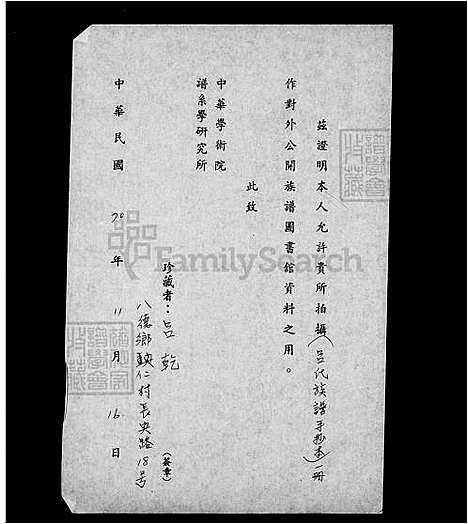 茲證明本人允許貴所拍攝(呂氏族譜手抄本)一冊
作對外公開族譜圖書館資料之用。
此致
中華學術院
譜系學研究所
珍藏者：呂乾 (簽章)
八德鄉仁村長興路18号
中華民國 70 年 11 月 16 日
FamilySearch